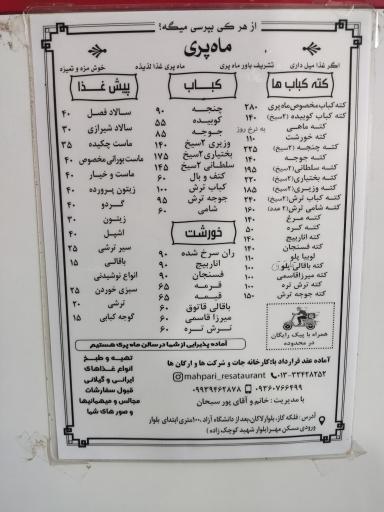 از هر کی بپرسی میگه؟
ماه پری
اگر غذا میل داری تشریف بیاور ماه پری ماه پری غذا لذیذه خوش مزه و تمیزه
کته کباب ها
کته کباب مخصوص ماه پری ۲۸۰
کته کباب کوبیده (۲سیخ) ۱۴۰
کته ماهی به نرخ روز
کته خورشت ۱۱۰
کته چنجه (۲سیخ) ۲۲۵
کته جوجه ۱۴۰
کته سلطانی (۲سیخ) ۱۹۵
کته بختیاری (۲سیخ) ۲۲۰
کته وزیری (۲سیخ) ۱۸۵
کته کباب ترش (۲سیخ) ۲۴۰
کته شامی ترش (۲ عدد) ۶۰
کته مرغ ۱۴۰
کته کره ۵۰
کته اناربیج ۱۴۰
کته فسنجان ۱۴۰
لوبیا پلو ۱۱۰
کته باقالی پلو ۱۰۰
کته میرزاقاسمی ۱۰۰
کته ترش تره ۱۰۰
کته جوجه ترش ۱۵۰
کباب
چنجه ۹۰
کوبیده ۵۵
جوجه ۸۵
وزیری ۲سیخ ۱۴۰
بختیاری ۲سیخ ۱۷۵
سلطانی ۲سیخ ۱۴۵
کتف و بال ۶۰
کباب ترش ۱۰۰
جوجه ترش ۹۵
شامی ۶۰
خورشت
ران سرخ شده ۹۰
اناربیج ۹۰
فسنجان ۹۰
قرمه ۶۵
قیمه ۶۵
باقالی قاتوق ۶۰
میرزا قاسمی ۶۰
ترش تره ۶۰
پیش غذا
سالاد فصل ۴۰
سالاد شیرازی ۳۰
ماست چکیده ۳۵
ماست بورانی مخصوص ۴۰
ماست و خیار ۴۰
زیتون پرورده ۴۰
گردو ۴۰
زیتون ۳۰
اشپل ۴۰
سیر ترشی ۲۵
باقالی ۱۵
انواع نوشیدنی
سبزی خوردن ۲۵
ترشی ۲۰
گوجه کبابی ۱۵
همراه با پیک رایگان
در محدوده
آماده پذیرایی از شما در سالن ماه پری هستیم
آماده عقد قرارداد با: کارخانه جات و شرکت ها و ارگان ها
mahpari_resataurant
۰۱۳-۳۳۴۲۸۲۵۲
۰۹۳۶۰۷۶۶۴۹۹
۰۹۹۳۹۴۶۲۸۷۸
با مدیریت: خانم و آقای پور سبحان
تهیه و طبخ
انواع غذاهای
ایرانی و گیلانی
قبول سفارشات
مجالس و میهمانیها
و سور های شما
آدرس: فلکه گاز، بلوار لاکان، بعد از دانشگاه آزاد، ۱۰۰متری ابتدای بلوار
ورودی مسکن مهر (بلوار شهید کوچک زاده)